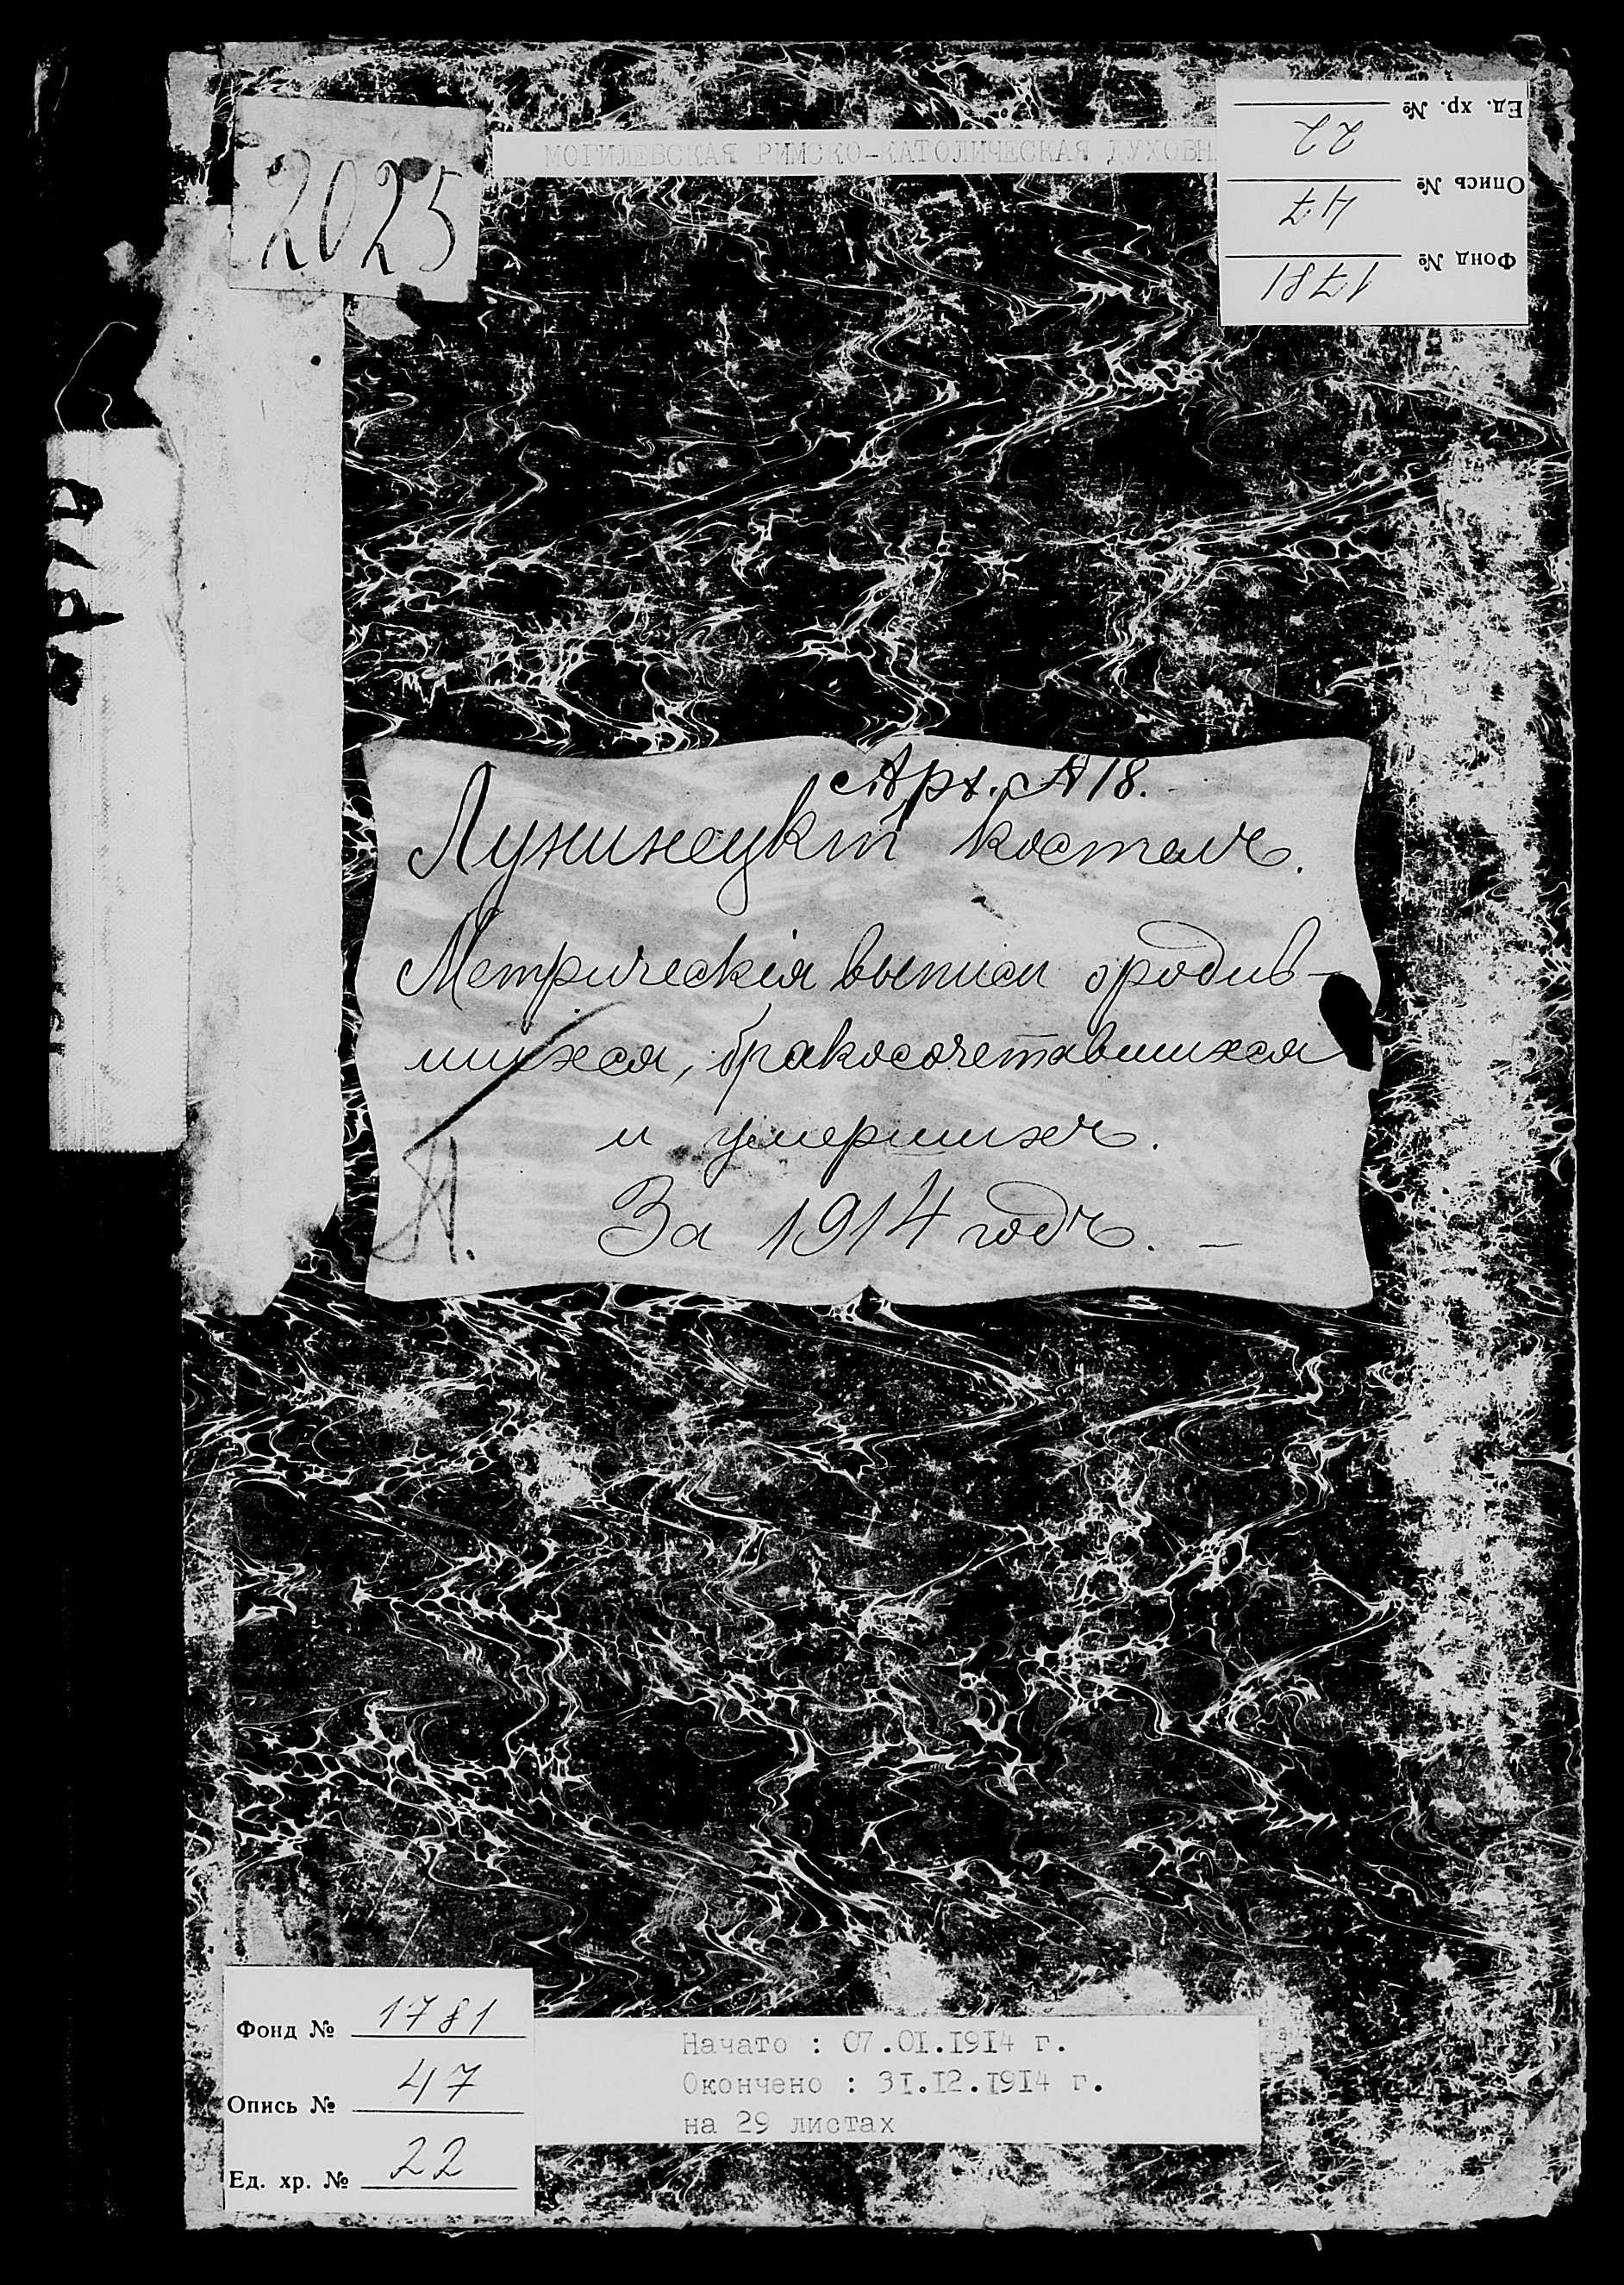 2025
МОГИЛЕВСКАЯ РИМСКО-КАТОЛИЧЕСКАЯ ДУХОВН
Ед. хр. № 22
Опись № 47
Фонд № 1781
Арх. № 18.
Лунинецкій костелъ.
Метрическія выписи ородив-
шихся, бракосочетавшихся
и умершихъ.
За 1914 годъ. –
Фонд № 1781
Опись № 47
Ед. хр. № 22
Начато : 07.01.1914 г.
Окончено : 31.12.1914 г.
на 29 листах